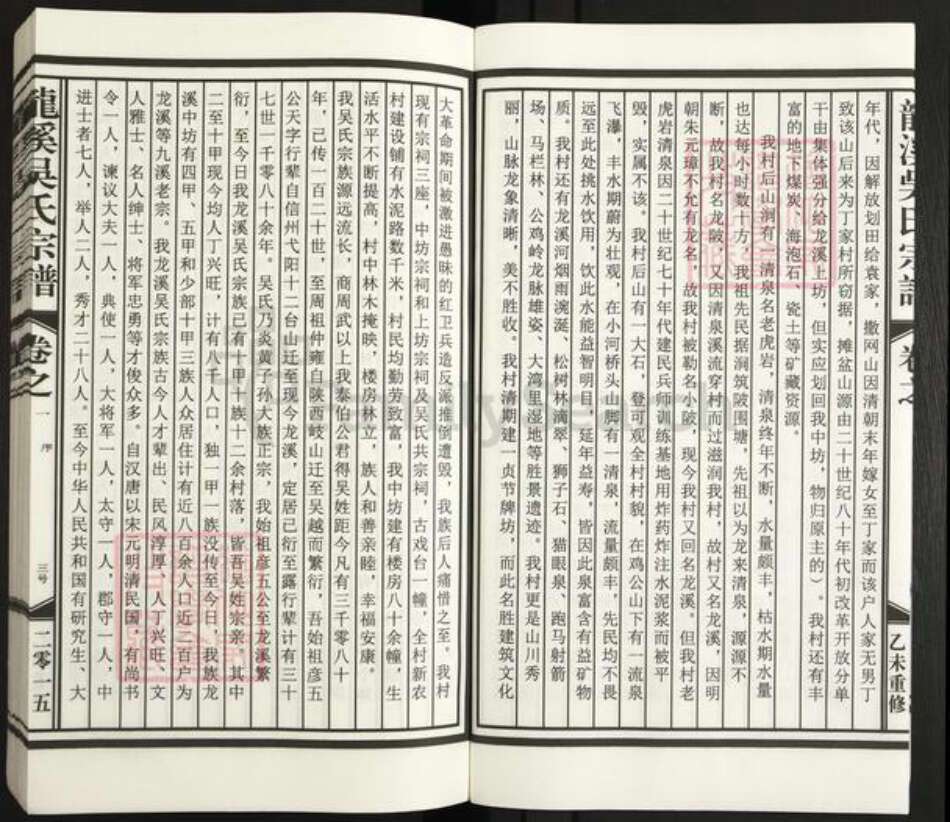 龍溪吴氏宗譜
卷之
乙未重修
年代，因解放划田给袁家，撒网山因清朝末年嫁女至丁家而该户人家无男丁
致该山后来为丁家村所窃据，摊盆山源由二十世纪八十年代初改革开放分单
干由集体强分给龙溪上坊，但实应划回我中坊，物归原主的）。我村还有丰
富的地下煤炭、海泡石、瓷土等矿藏资源。
我村后山涧有一清泉名老虎岩，清泉终年不断，水量颇丰，枯水期水量
也达每小时数十方，我祖先民据涧筑陂围塘，先祖以为龙来清泉，源源不
断，故我村名龙陂，又因清泉溪流穿村而过滋润我村，故村又名龙溪，因明
朝朱元璋不允有龙名，故我村被勒名小陂，现今我村又回名龙溪。但我村老
虎岩清泉因二十世纪七十年代建民兵师训练基地用炸药炸注水泥浆而被平
毁，实属不该。我村后山有一大石，登可观全村村貌，在鸡公山下有一流泉
飞瀑，丰水期蔚为壮观，在小河桥头山脚有一清泉，流量颇丰，先民均不畏
远至此处挑水饮用，饮此水能益智明目，延年益寿，皆因此泉富含有益矿物
质。我村还有龙溪河烟雨漪涎、松树林滴翠、狮子石、猫眼泉、跑马射箭
场、马栏林、公鸡岭龙脉雄姿、大湾里湿地等胜景遗迹。我村更是山川秀
丽，山脉龙象清晰，美不胜收。我村清期建一贞节牌坊，而此名胜建筑文化
大革命期间被激进愚昧的红卫兵造反派推倒遭毁，我族后人痛惜之至。我村
现有宗祠三座，中坊宗祠和上坊宗祠及吴氏共宗祠，古戏台一幢，全村新农
村建设铺有水泥路数千米，村民均勤劳致富，我中坊建有楼房八十余幢，生
活水平不断提高，村中林木掩映，楼房林立，族人和善亲睦，幸福安康。
我吴氏宗族源远流长，商周武以上我泰伯公君得吴姓距今凡有三千零八十
年，已传一百二十世，至周祖仲雍自陕西岐山迁至吴越而繁衍，吾始祖彦五
公天字行辈自信州弋阳十二台山迁至现今龙溪，定居已衍至露行辈计有三十
七世一千零八十余年。吴氏乃炎黄子孙大族正宗，我始祖彦五公至龙溪繁
衍，至今日我龙溪吴氏宗族已有十甲十族十二余村落，皆吾吴姓宗亲。其中
二至十甲现今均人丁兴旺，计有八千人口，独一甲一族没传至今日，我族龙
溪中坊有四甲、五甲和少部十甲三族人众居住计有近八百余人口近二百户为
龙溪等九溪老宗。我龙溪吴氏宗族古今人才辈出、民风淳厚、人丁兴旺、文
人雅士、名人绅士、将军忠勇等才俊众多。自汉唐以宋元明清民国，有尚书
令一人，谏议大夫一人，典使一人，大将军一人，太守一人，郡守一人，中
进士者七人，举人二人，秀才二十八人。至今中华人民共和国有研究生、大
龍溪吴氏宗譜
卷之
一 序
三号
二零一五